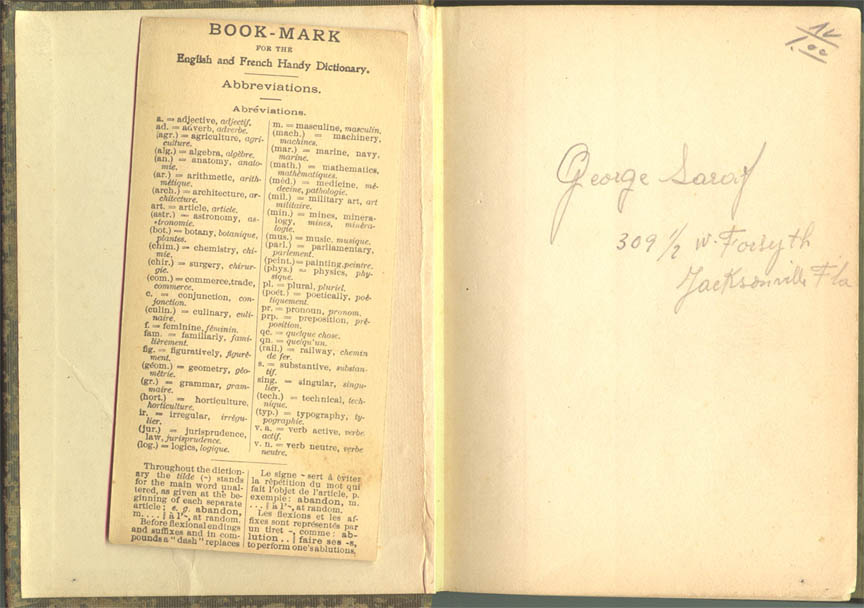 BOOK-MARK
FOR THE
English and French Handy Dictionary.
Abbreviations.
Abréviations.
a. = adjective, adjectif.
ad. = adverb, adverbe.
(agr.) = agriculture, agri-
culture.
(alg.) = algebra, algèbre.
(an.) = anatomy, anato-
mie.
(ar.) = arithmetic, arith-
métique.
(arch.) = architecture, ar-
chitecture.
art. = article, article.
(astr.) = astronomy, as-
tronomie.
(bot.) = botany, botanique,
plantes.
(chim.) = chemistry, chi-
mie.
(chir.) = surgery, chirur-
gie.
(com.) = commerce, trade,
commerce.
c. = conjunction, con-
jonction.
(culin.) = culinary, culi-
naire.
f. = feminine, féminin.
fam. = familiarly, fami-
lièrement.
fig. = figuratively, figuré-
ment.
(géom.) = geometry, géo-
métrie.
(gr.) = grammar, gram-
maire.
(hort.) = horticulture,
horticulture.
ir. = irregular, irrégu-
lier.
(jur.) = jurisprudence,
law, jurisprudence.
(log.) = logics, logique.
m. = masculine, masculin.
(mach.) = machinery,
machines.
(mar.) = marine, navy,
marine.
(math.) = mathematics,
mathématiques.
(méd.) = medicine, mé-
decine, pathologie.
(mil.) = military art, art
militaire.
(min.) = mines, minera-
logy, mines, minéra-
logie.
(mus.) = music, musique.
(parl.) = parliamentary,
parlement.
(peint.) = painting, peintre.
(phys.) = physics, phy-
sique.
pl. = plural, pluriel.
(poét.) = poetically, poé-
tiquement.
pr. = pronoun, pronom.
prp. = preposition, pré-
position.
qc. = quelque chose.
qn. = quelqu'un.
(rail.) = railway, chemin
de fer.
s. = substantive, substan-
tif.
sing. = singular, singu-
lier.
(tech.) = technical, tech-
nique.
(typ.) = typography, ty-
pographie.
v. a. = verb active, verbe
actif.
v. n. = verb neutre, verbe
neutre.
Throughout the diction-
ary the tilde (~) stands
for the main word unal-
tered, as given at the be-
ginning of each separate
article; e. g. abandon,
m. . . . | à l'~, at random.
Before flexional endings
and suffixes and in com-
pounds a "dash" replaces
Le signe ~ sert à évitez
la répétition du mot qui
fait l'objet de l'article, p.
exemple: abandon, m.
. . . | à l'~, at random.
Les flexions et les af-
fixes sont représentés par
un tiret -, comme: ab-
lution . . | faire ses -s,
to perform one's ablutions,
1.00
George Saraf
309 1/2 W. Forsyth
Jacksonville Fla